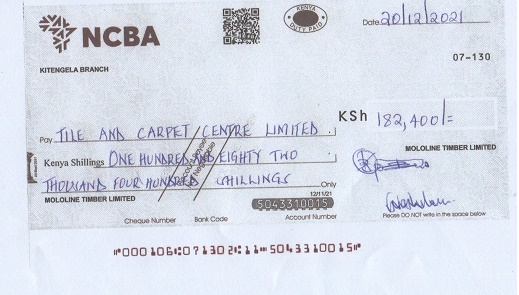 NCBA
KENYA
DUTY PAID
Date 20/12/2021
07-130
KITENGELA BRANCH
Pay TILE AND CARPET CENTRE LIMITED
KSh 182,400/=
Kenya Shillings ONE HUNDRED AND EIGHTY TWO
THOUSAND FOUR HUNDRED SHILLINGS Only
MOLOLINE TIMBER LIMITED
MOLOLINE TIMBER LIMITED
12/11/21
5043310015
Cheque Number Bank Code Account Number
Please DO NOT write in the space below
"000106:071302:11=5043310015"